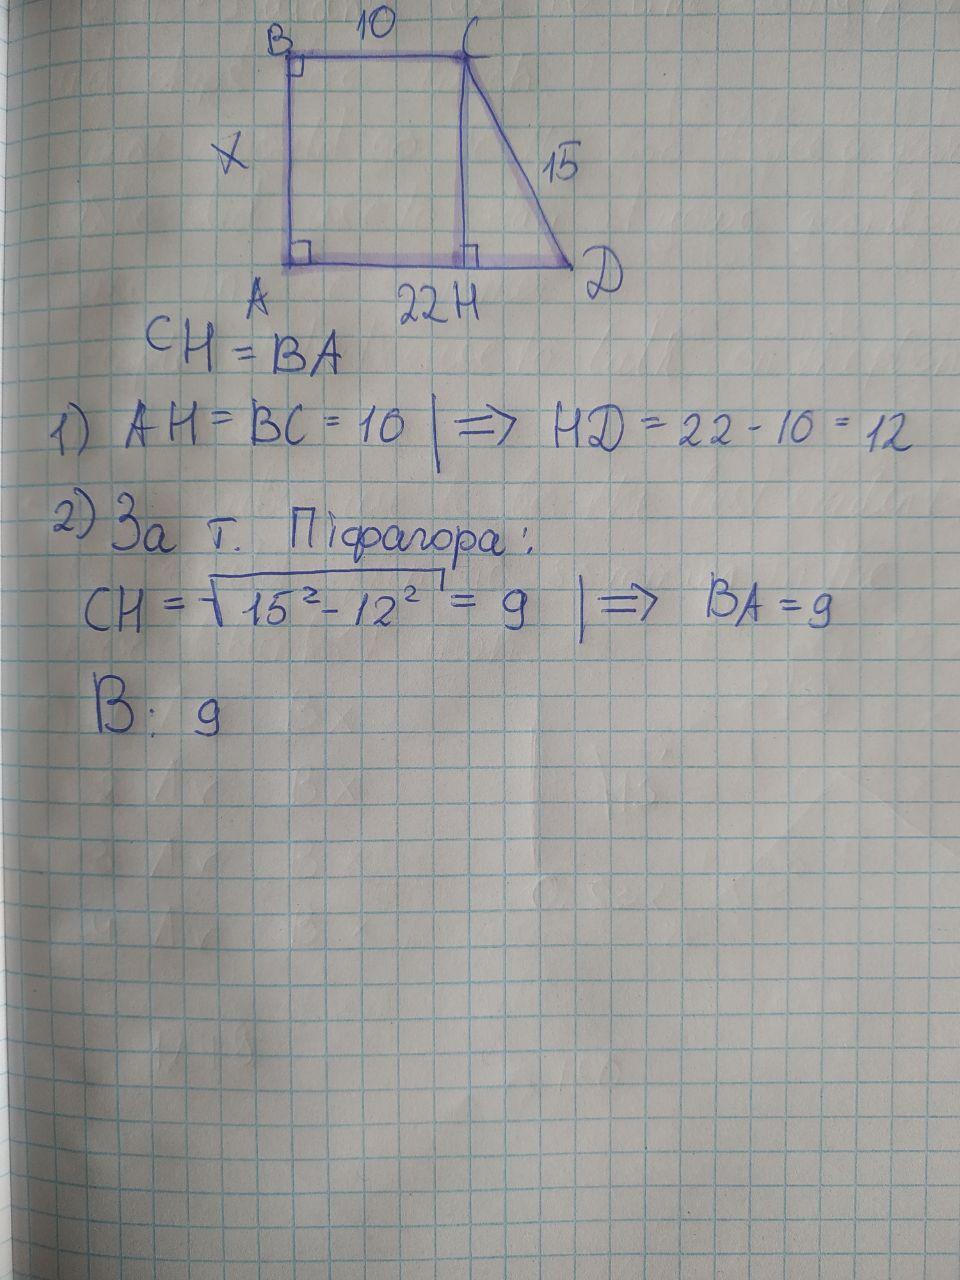 10
B C
X 15
A 22 H D
CH = BA
1) AH = BC = 10 | => HD = 22 - 10 = 12
2) За т. Піфагора:
CH = √15² - 12² = 9 | => BA = 9
В: 9